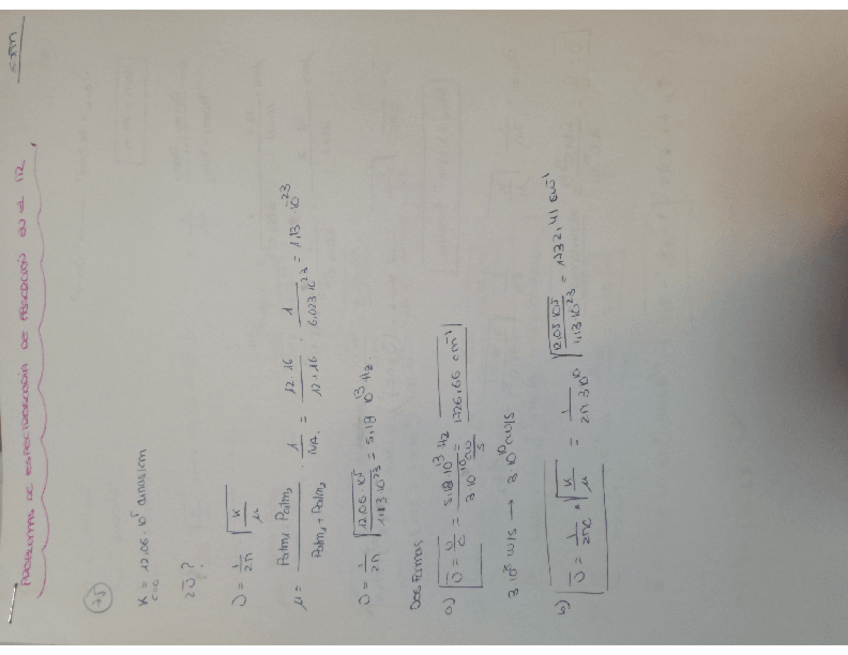 PROBLEMAS DE ESPECTROSCOPIA DE ABSORCIÓN EN EL IR
75
K = 12.06 · 10⁵ dinas/cm
C=O
¿ῡ?
υ = 1/2π √(K/μ)
μ = Patm₁ · Patm₂ / Patm₁ + Patm₂ · 1/NA = 12·16 / 12+16 · 1/6.023·10²³ = 1,13 · 10⁻²³
υ = 1/2π √(12.06·10⁵ / 1.13·10⁻²³) = 5,18 · 10¹³ Hz
DOS FORMAS
a) ῡ = υ/c = 5,18·10¹³ Hz / 3·10¹⁰ cm/s = 1726,66 cm⁻¹
3·10⁸ m/s → 3·10¹⁰ cm/s
b) ῡ = 1/2πc · √(K/μ) = 1/2π 3·10¹⁰ √(12.05·10⁵ / 1,13·10⁻²³) = 1732,41 cm⁻¹